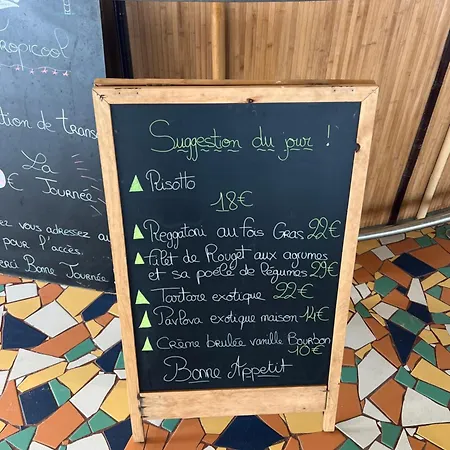 Tropicool
La
Journée
vous adressez au
pour l'accès.
Merci Bonne Journée
Suggestion du jour !
Risotto
18€
Reggatoni au fois Gras 22€
Filet de Rouget aux agrumes
et sa poêlé de légumes 29€
Tartare exotique 22€
Pavlova exotique maison 14€
Crème brulée vanille Bourbon
10€
Bonne Appetit